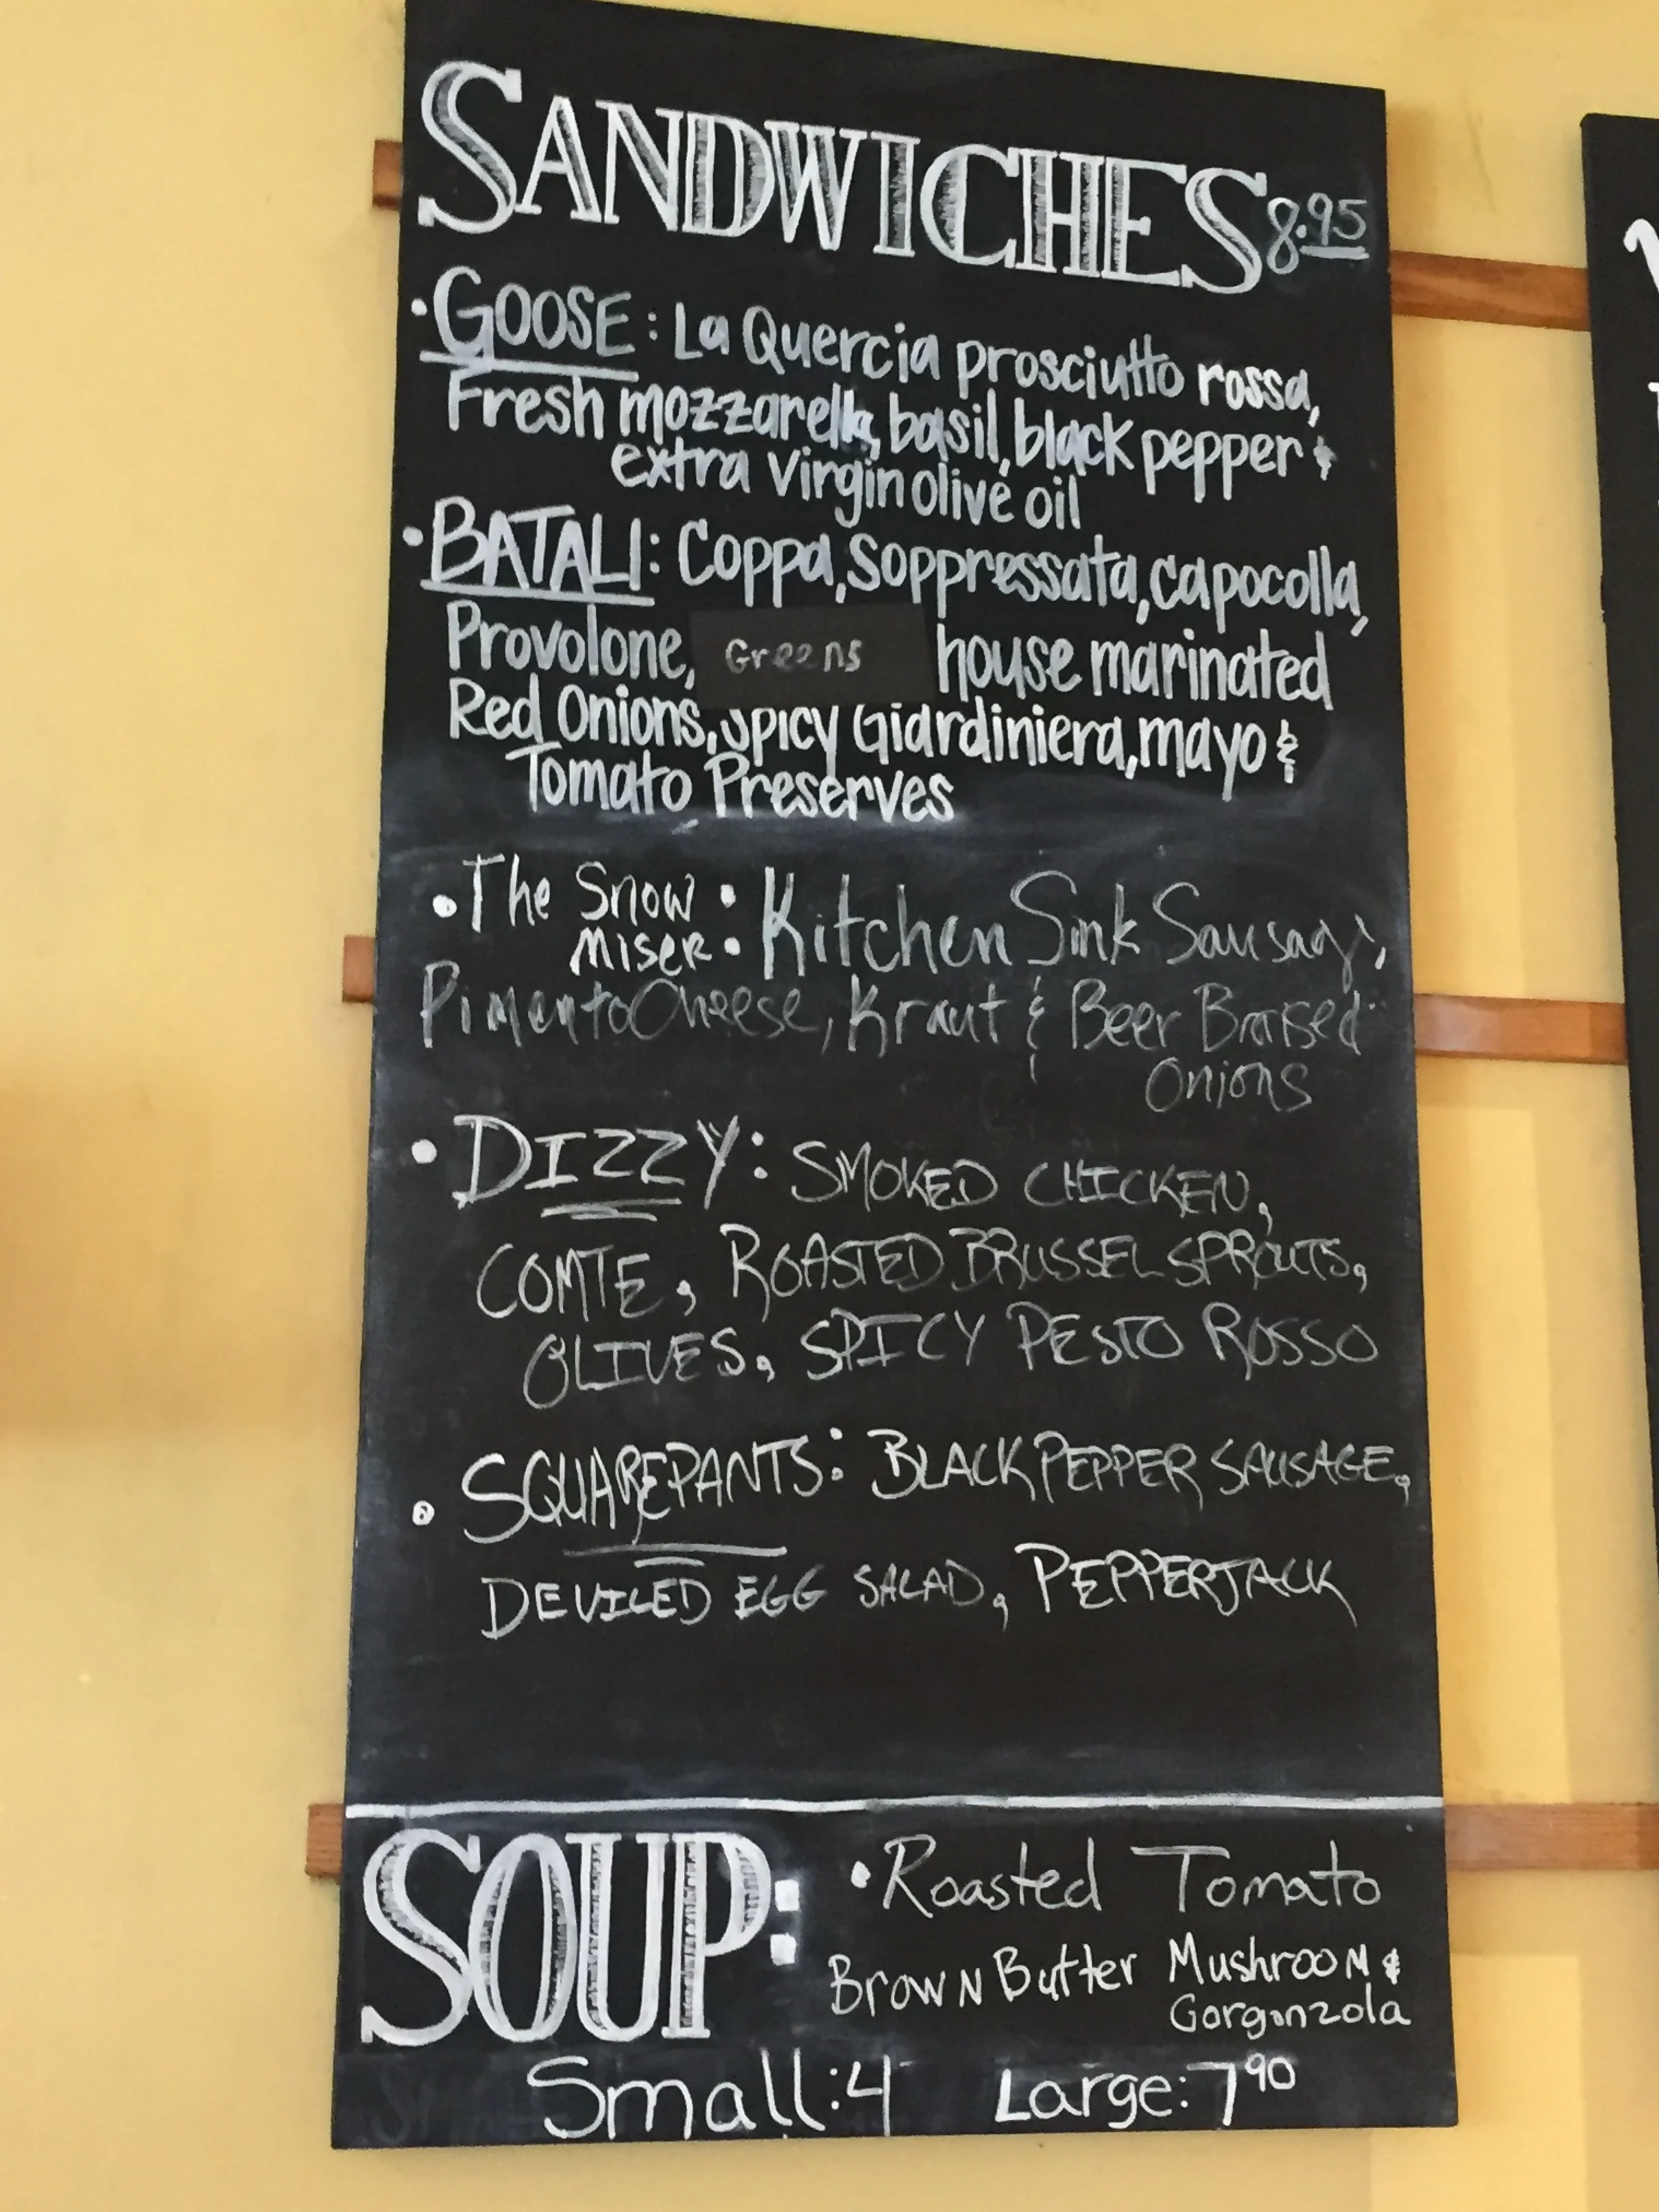 SANDWICHES 8.95
• GOOSE: La Quercia prosciutto rossa,
Fresh mozzarella, basil, black pepper &
extra Virgin olive oil
• BATALI: Coppa, Soppressata, capocolla,
Provolone, Greens house marinated
Red Onions, Spicy Giardiniera, mayo &
Tomato Preserves
• The Snow Miser: Kitchen Sink Sausage,
Pimento Cheese, Kraut & Beer Braised
Onions
• DIZZY: SMOKED CHICKEN,
COMTE, ROASTED BRUSSEL SPROUTS,
OLIVES, SPICY PESTO ROSSO
• SQUAREPANTS: BLACK PEPPER SAUSAGE,
DEVILED EGG SALAD, PEPPERJACK
SOUP: • Roasted Tomato
Brown Butter Mushroom &
Gorgonzola
Small: 4 Large: 7 90